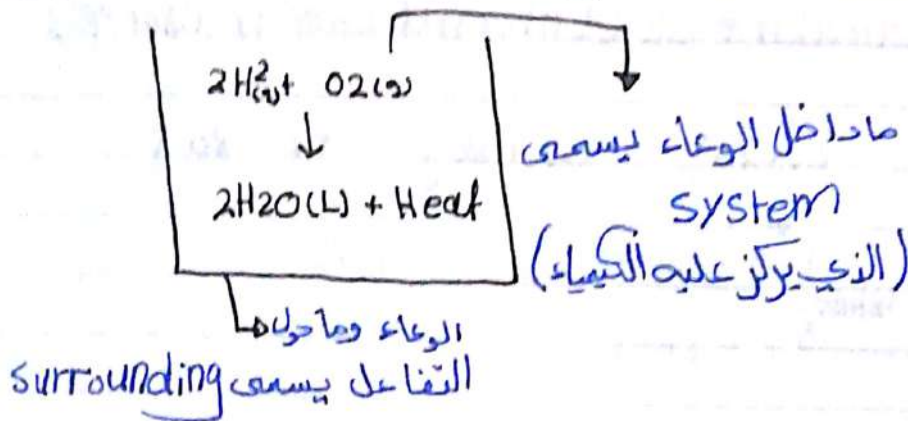 2H2(g) + O2(g)
↓
2H2O(L) + Heat
ماداخل الوعاء يسمى
system
(الذي يركز عليه الكيمياء)
الوعاء وماحول
التفاعل يسمى surrounding